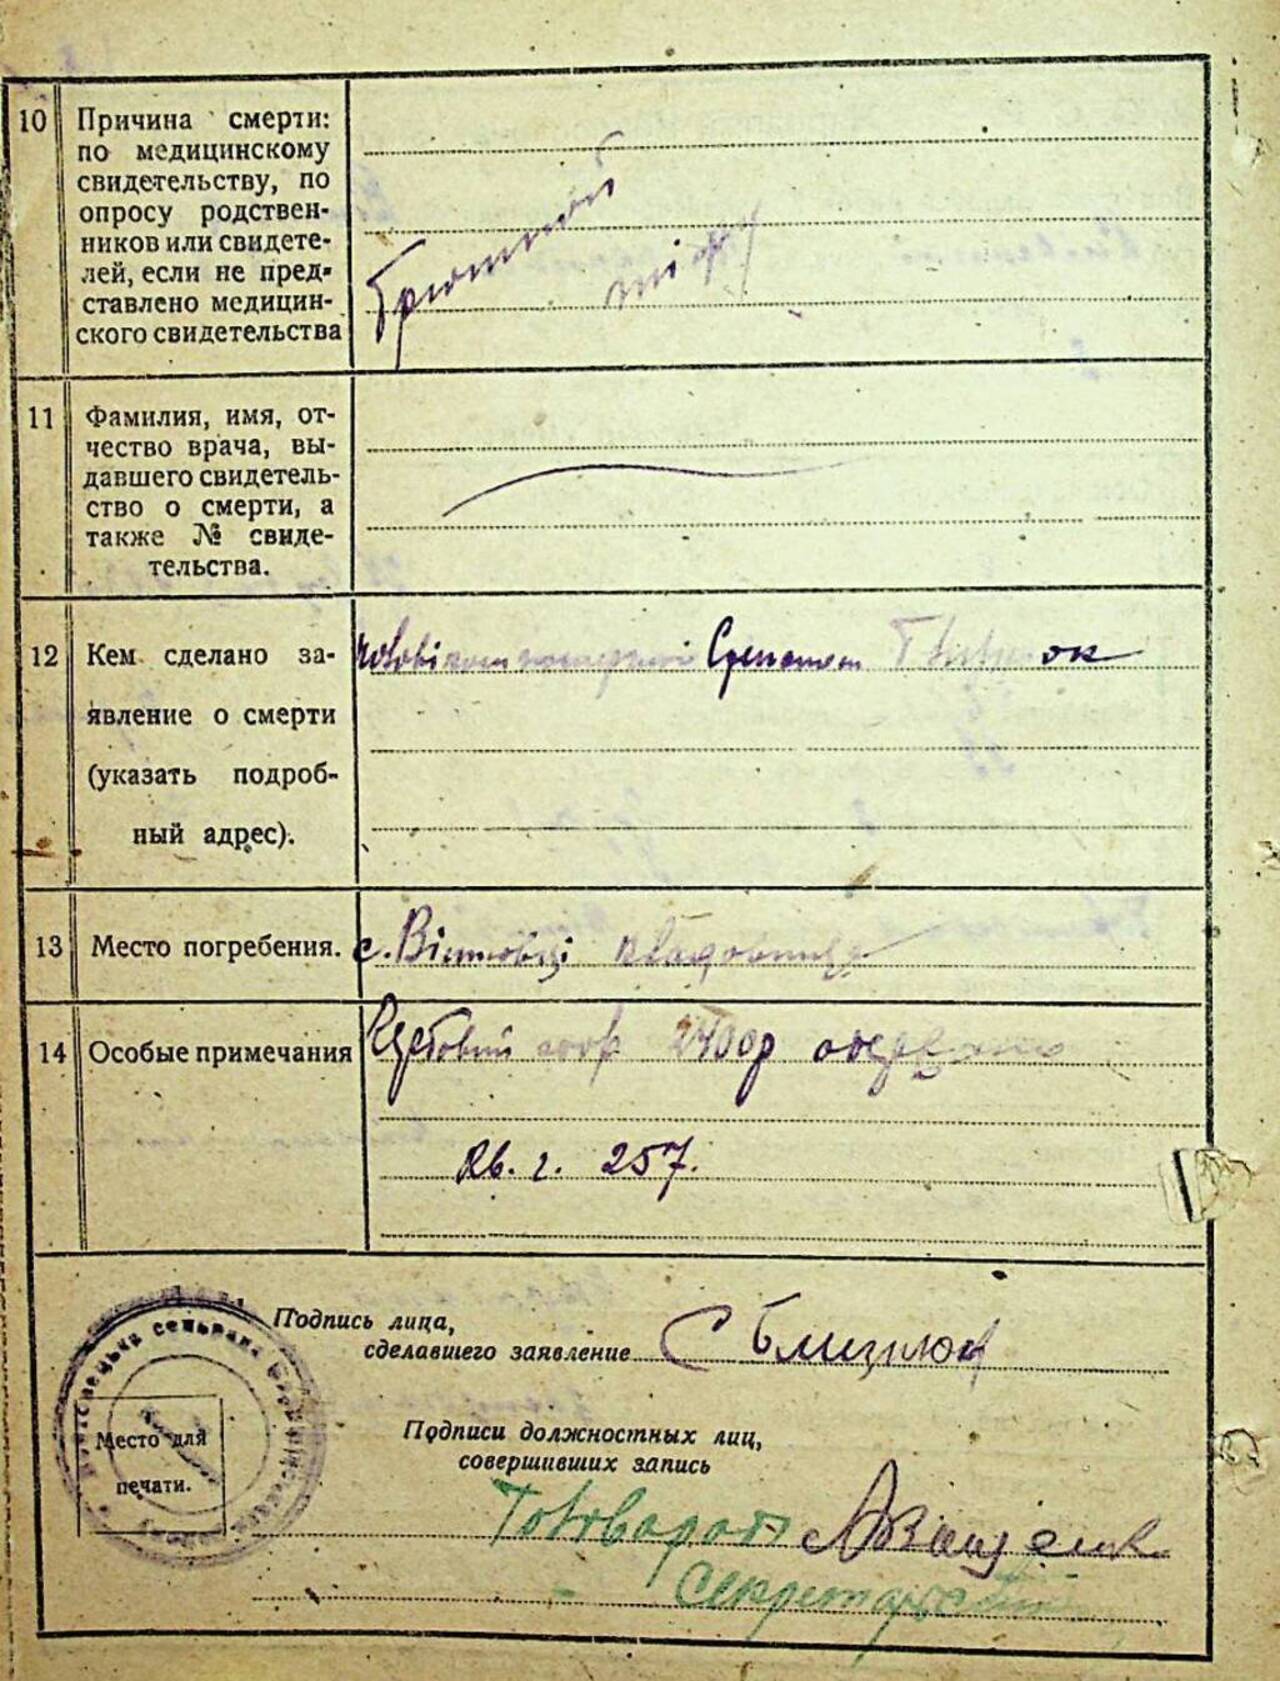 10
Причина смерти:
по медицинскому
свидетельству, по
опросу родствен-
ников или свидете-
лей, если не пред-
ставлено медицин-
ского свидетельства
Брюшной
тіф
11
Фамилия, имя, от-
чество врача, вы-
давшего свидетель-
ство о смерти, а
также № свиде-
тельства.
12
Кем сделано за-
явление о смерти
(указать подроб-
ный адрес).
Степаном
13
Место погребения.
с. кладовище
14
Особые примечания
збор 2400р
кв. г. 257.
Подпись лица,
сделавшего заявление
С Близнюк
Место для
печати.
Подписи должностных лиц,
совершивших запись
Голова
Секретарь